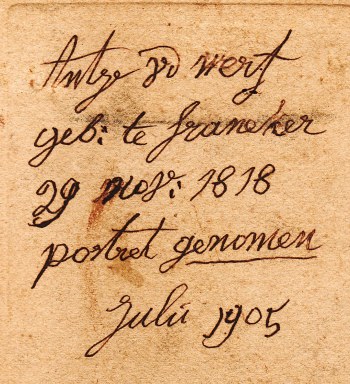 Antje vd werf
geb: te franeker
29 nov: 1818
portret genomen
Julii 1905